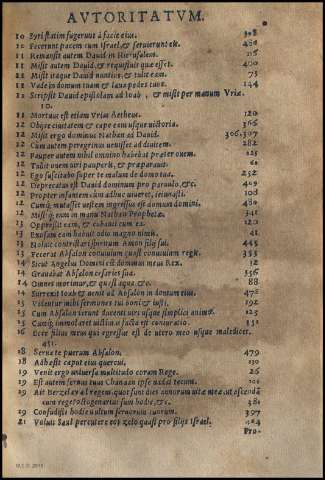 AVTORITATVM.
10 Syri statim fugerunt à facie eius. 308
10 Fecerunt pacem cum Israel, & seruierunt eis. 480
11 Remansit autem Dauid in Hierusalem.
11 Misit autem Dauid, & requisiuit quæ esset. 400
11 Misit itaque Dauid nuntios, & tulit eam. 75
11 Vade in domum tuam & laua pedes tuos. 144
11 Scripsit Dauid epistolam ad Ioab, & misit per manum Vriæ.
10.
11 Mortuus est etiam Vrias Aetheus. 120
12 Obside ciuitatem & cape eam usque
12 Misit ergo dominus Nathan ad Dauid. 306.307
12 Cum autem peregrinus uenisset ad diuitem. 282
12 Pauper autem nihil omnino habebat præter ouem.
12 Tulit ouem uiri pauperis, & præparauit.
12 Ego suscitabo super te malum de domo tua. 252
12 Deprecatus est Dauid dominum pro paruulo, &c. 409
12 Propter infantem cùm adhuc uiueret, ieiunasti. 108
12 Cumque mutasset uestem ingressus est domum domini. 480
12 Misitque eum in manu Nathan Prophetæ. 341
13 Oppressit eam, & cubauit cum ea. 120
13 Exosam eam habuit odio magno nimis. 41
13 Noluit contristari spiritum Amon filij sui. 445
13 Fecerat Absalon conuiuium quasi conuiuium regis. 355
14 Sicut Angelus Domini est dominus meus Rex. 12
14 Grauabat Absalon cæsaries sua. 356
14 Omnes morimur, & quasi aqua, &c. 88
14 Surrexit Ioab & uenit ad Absalon in domum eius. 478
15 Videntur mihi sermones tui boni & iusti. 192
15 Cum Absalon iterum docenti uiri usque simplici animo. 123
15 Cumque immolaret uictimas facta est coniuratio. 151
16 Ecce filius meus qui egressus est de utero meo usque maledicet.
451.
18 Seruate puerum Absalon. 479
18 Adhæsit caput eius quercui. 150
19 Venit ergo uniuersa multitudo coram Rege. 26
19 Est autem seruus tuus Chanaan ipse uadat tecum. 101
19 Ait Berzelai ad regem, quot sunt dies annorum uitæ meæ, ut ascendã
cum rege? octogenarius sum hodie, &c. 381
19 Confudisti hodie uultum seruorum tuorum. 397
21 Voluit Saul percutere eos zelo quasi pro filijs Israel. 124
Pro-